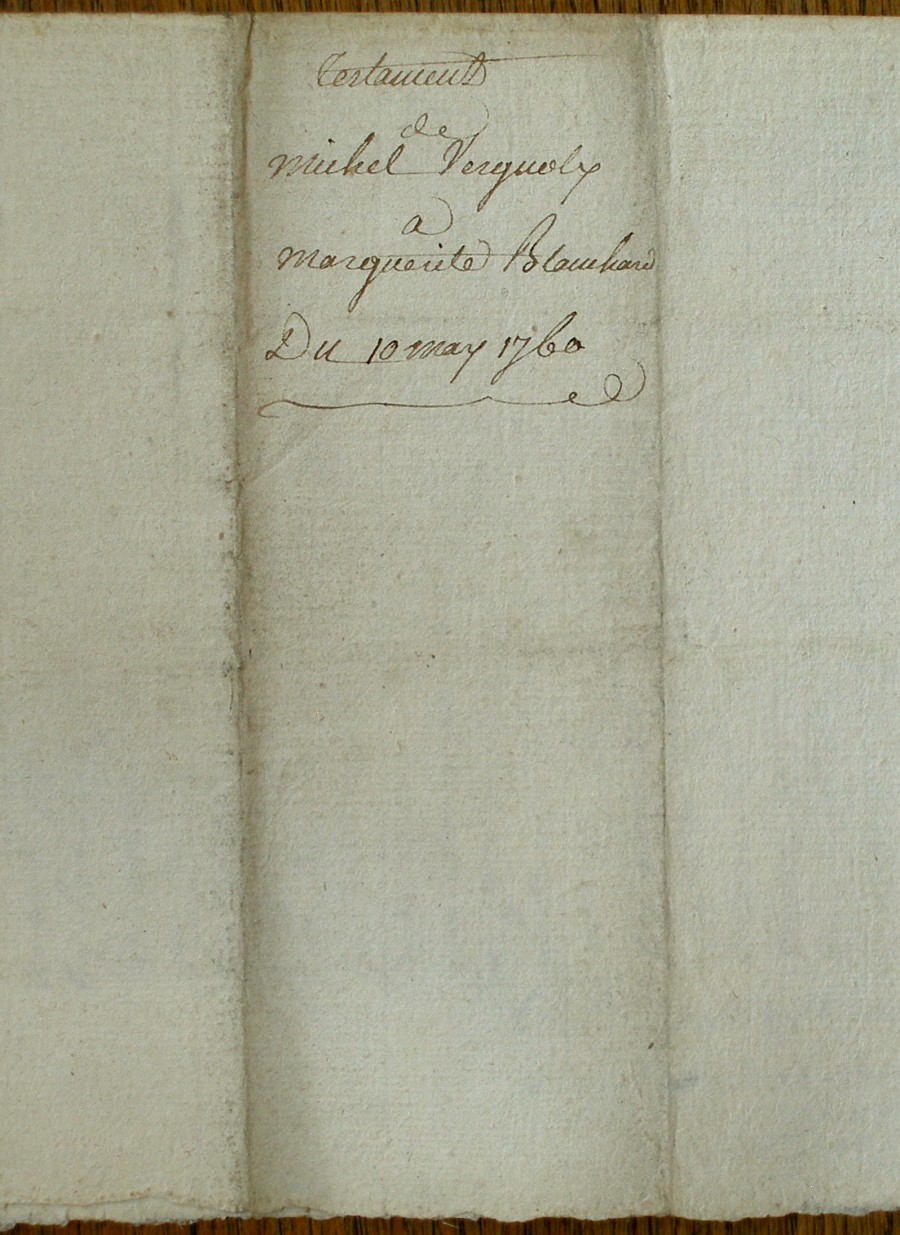 Testament
de
Michel Vergnoly
a
Marguerite Blanchard
Du 10 may 1760